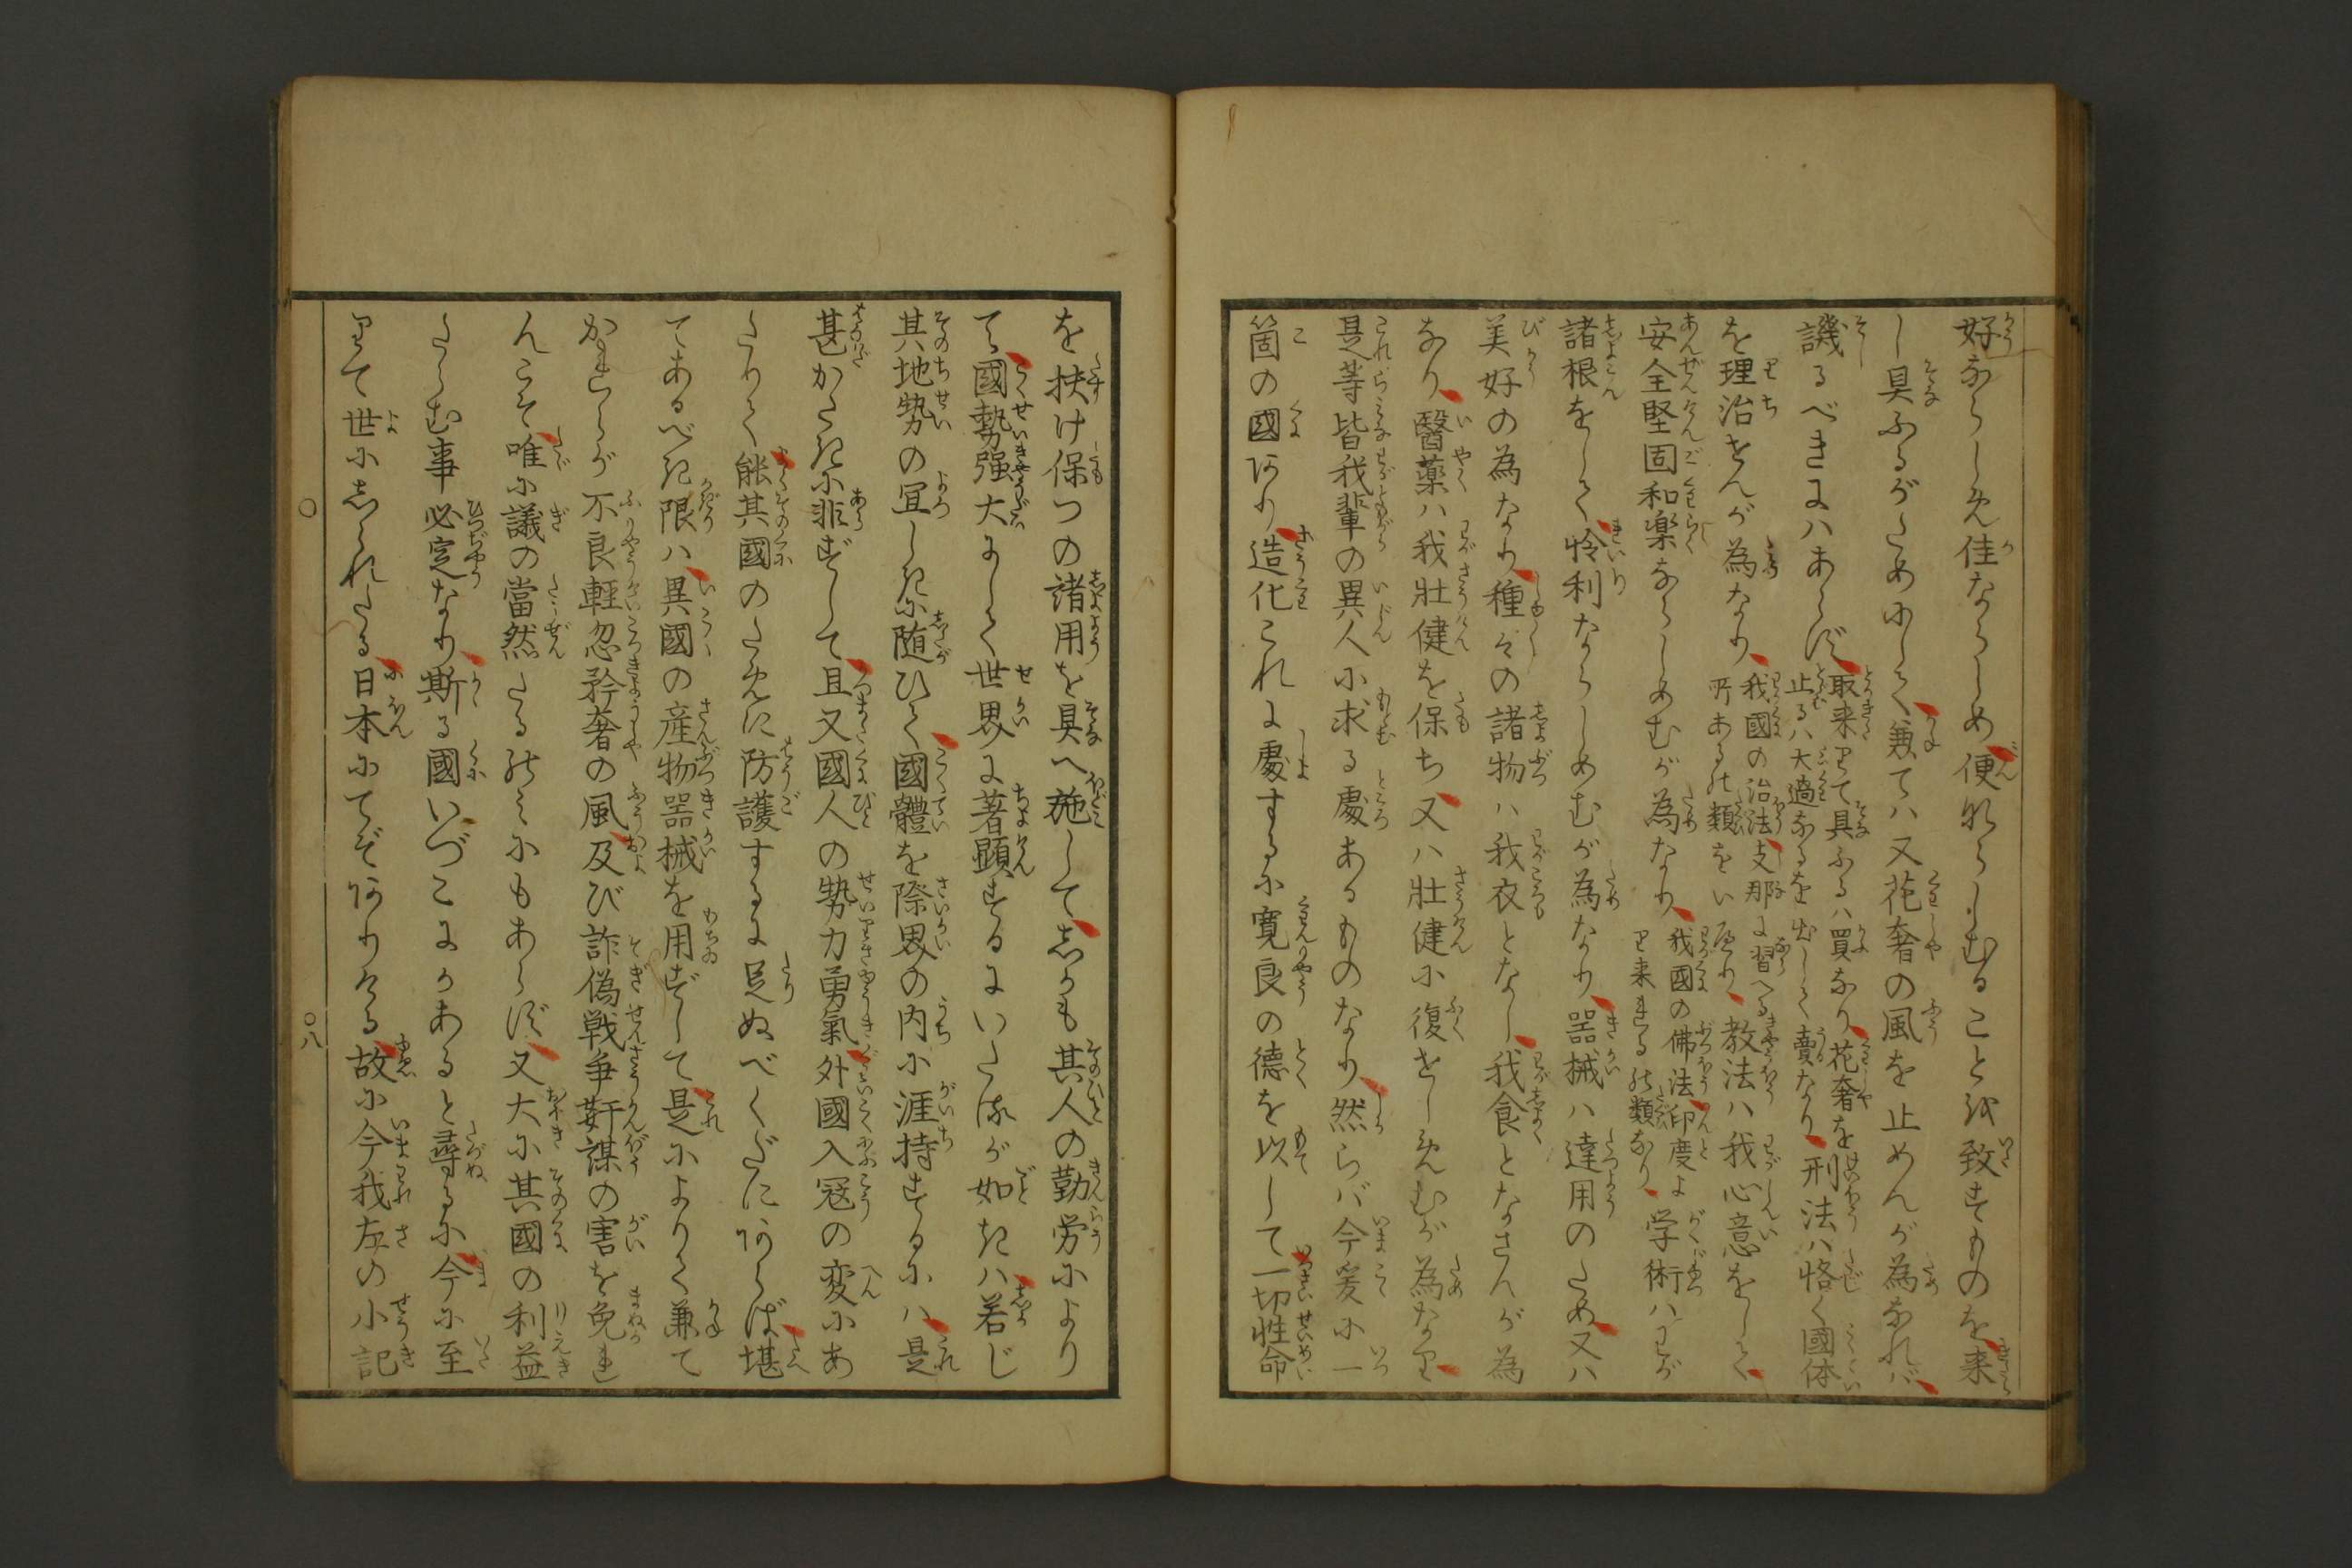 好ならしめ佳ならしめ便ならしむることを致すものを来
し具ふるがためにして兼てハ又花奢の風を止めんが為なれバ
譏るべきにハあらず取来りて具ふるハ買なり花奢を
止るハ大過なるを出して賣なり刑法ハ恪く國体
を理治せんが為なり我國の治法支那に習へる
所あるの類をいへり教法ハ我心意をして
安全堅固和楽ならしめむが為なり我國の佛法印度よ
り来れるの類なり学術ハわが
諸根をして怜利ならしめむが為なり器械ハ達用のため又ハ
美好の為なり種々の諸物ハ我衣となし我食となさんが為
なり醫薬ハ我壮健を保ち又ハ壮健に復せしめむが為なり
是等皆我輩の異人に求る處あるものなり然らバ今爰に一
箇の國あり造化これに處するに寛良の德を以して一切性命
を扶け保つの諸用を具へ施してしかも其人の勤労により
て國勢强大にして世界に著顕するにいたるが如きハ若し
其地勢の宜しきに随ひて國體を際界の内に涯持するにハ是
甚かたきに非ずして且又國人の勢力勇氣外國入冦の変にあ
たりて能其國のために防護するに足ぬべくだにあらば堪
てあるべき限ハ異國の産物器械を用ずして是によりて兼て
かれらが不良輕忽矜奢の風及び詐偽戦争奸謀の害を免れ
んこそ唯に議の當然たるのミにもあらず又大に其國の利益
たらむ事必定なり斯る國いづこにかあると尋るに今に至
りて世にしられたる日本にてぞありける故に今我左の小記
〇八